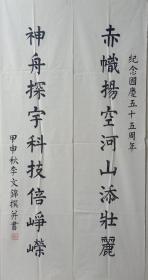 紀念國慶五十五周年
赤幟揚空河山添壯麗
神舟探宇科技倍崢嶸
甲申秋李文錦撰并書